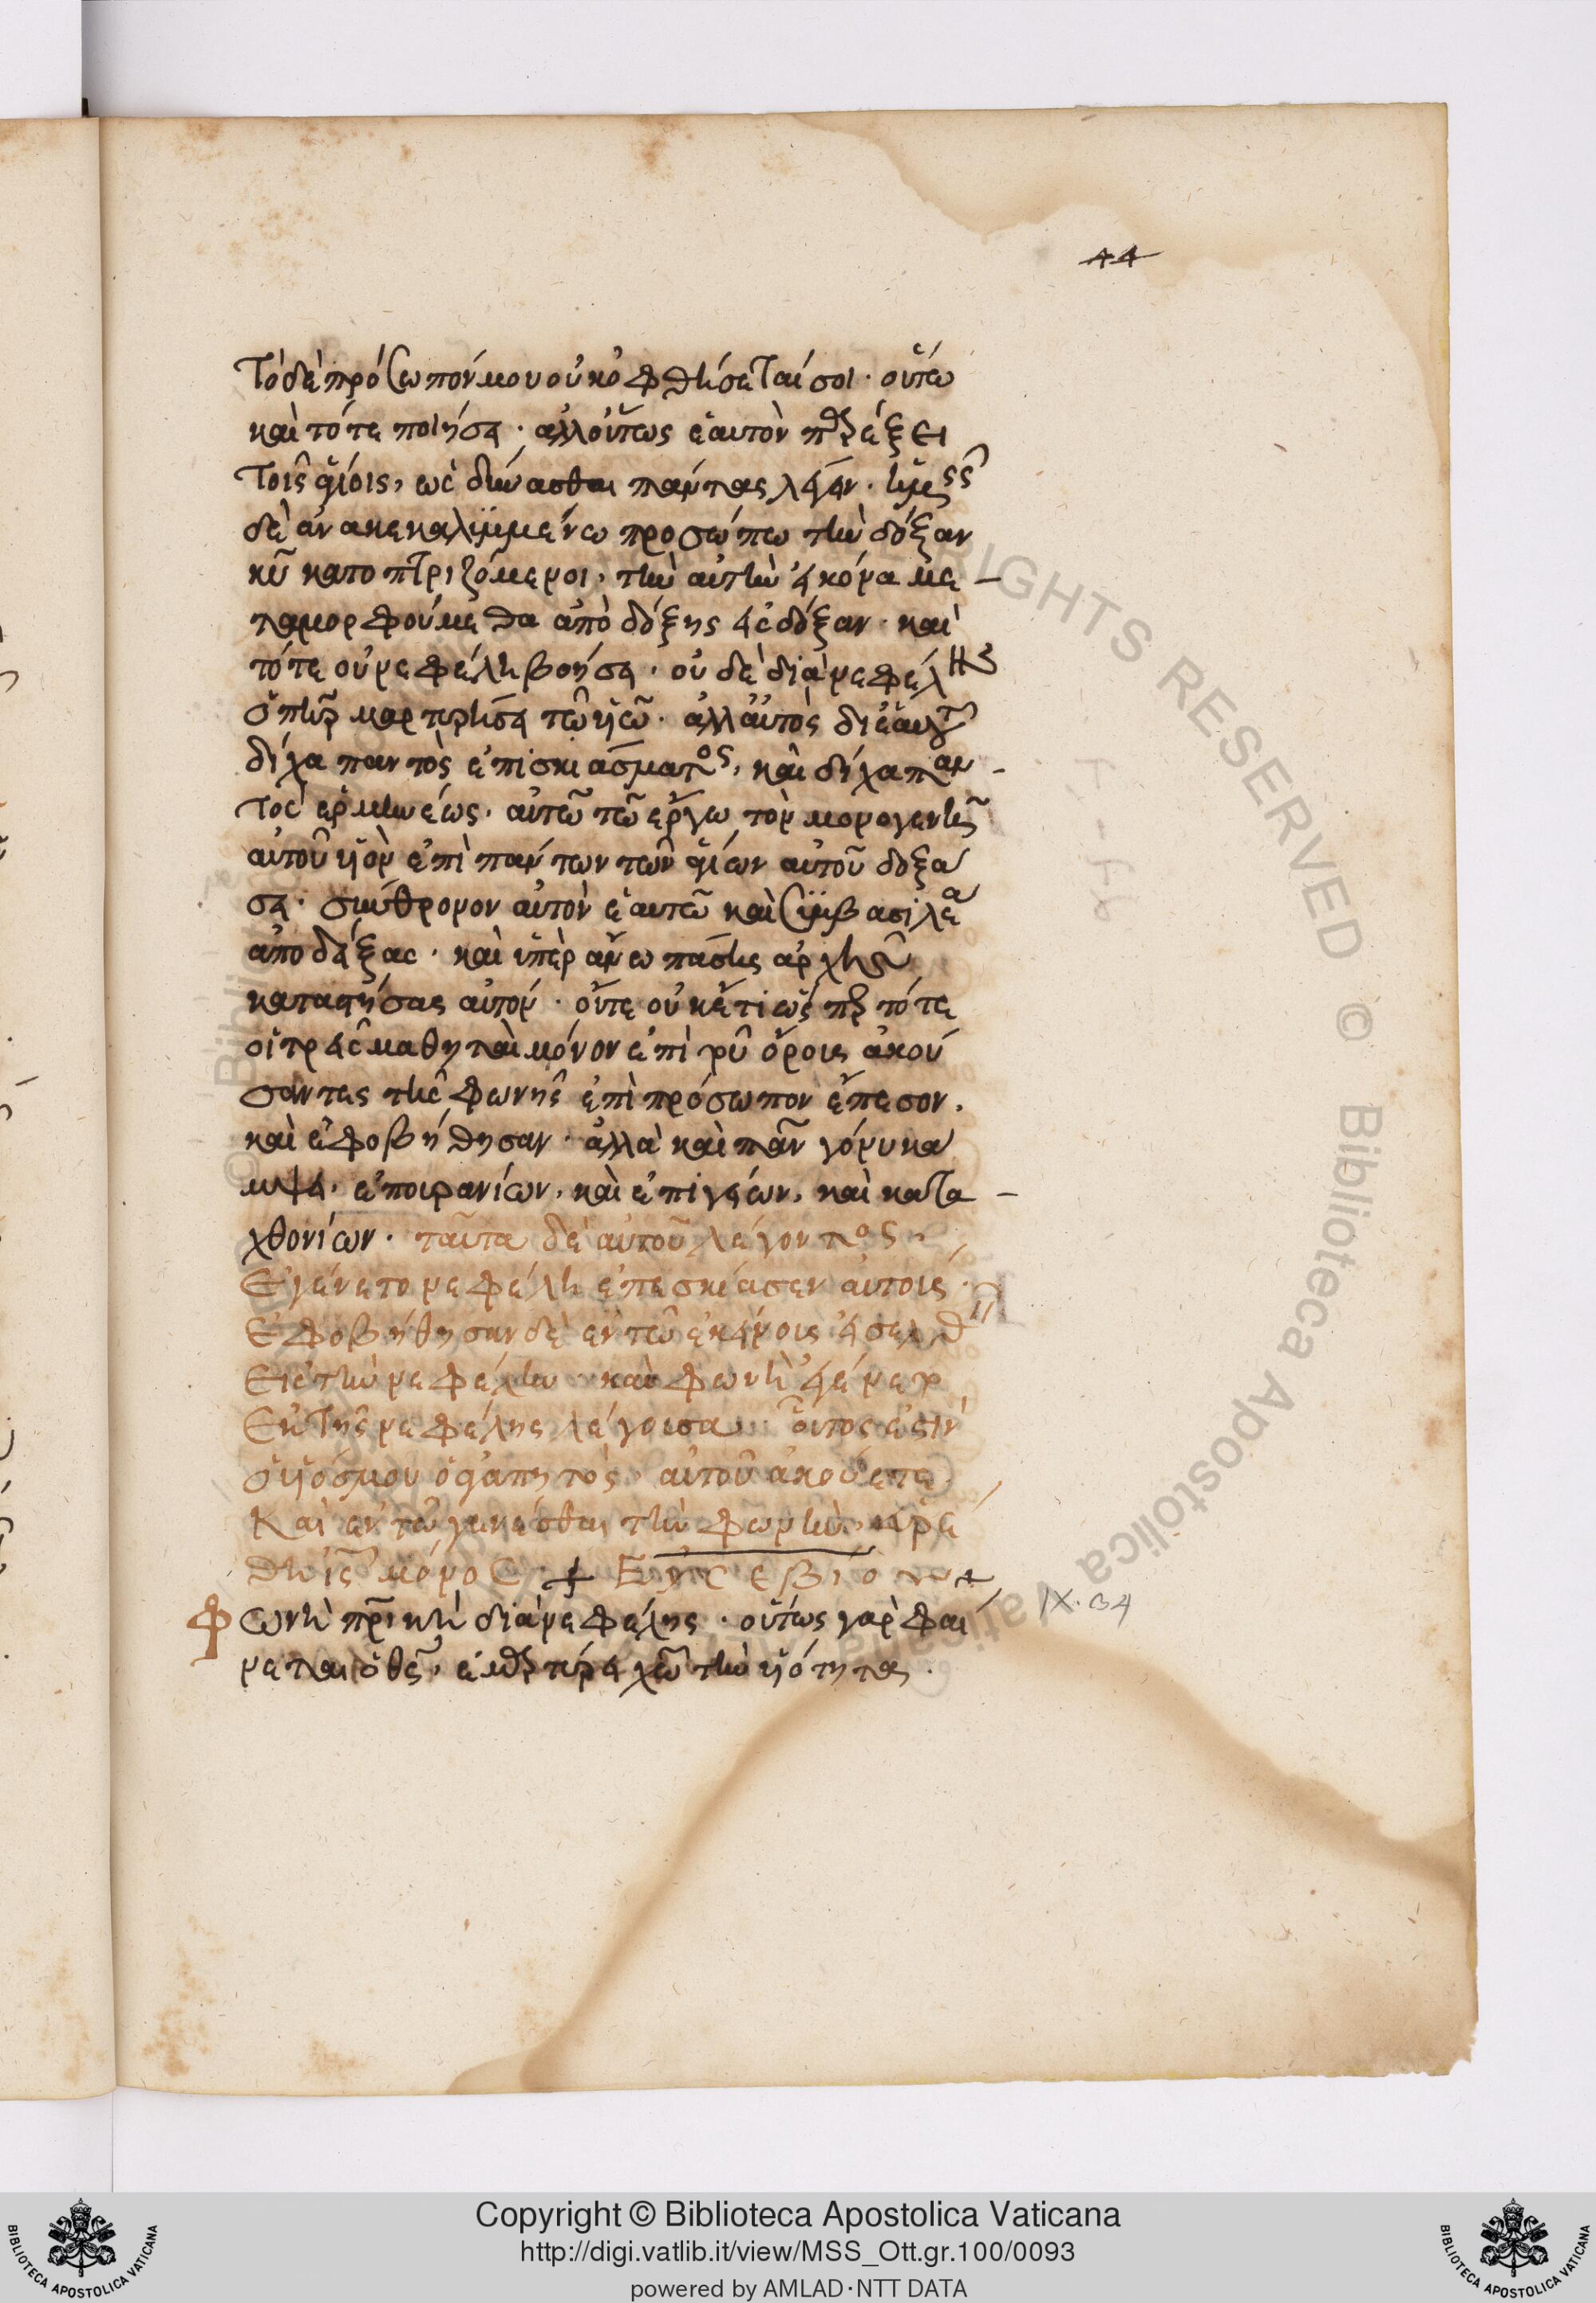 44
Τὸ δὲ πρόσωπόν μου οὐκ ὀφθήσεταί σοι · οὕτω
καὶ τότε ποιήσει · ἀλλ οὕτως ἑαυτὸν παρέξει
τοῖς ἁγίοις, ὡς δύνασθαι πάντας λέγειν · ἡμεῖς
δὲ ἀνακεκαλυμμένω προσώπω τὴν δόξαν
κυ κατοπτριζόμενοι, τὴν αὐτὴν εἰκόνα με -
ταμορφούμεθα ἀπὸ δόξης εἰς δόξαν · καὶ
τότε οὐ νεφέλη βοήσει · οὐδὲ διὰ νεφέλης
ὁ πηρ μαρτυρήσει τῶ υἱῶ · ἀλλ αὐτὸς δι ἑαυτοῦ
δίχα παντὸς ἐπισκιάσματος, καὶ δίχα παν -
τὸς ἑρμηνέως · αὐτῶ τῶ ἔργω τὸν μονογενῆ
αὐτοῦ υἱὸν ἐπὶ πάντων τῶν ἁγίων αὐτοῦ δοξά
σει · σύνθρονον αὐτὸν ἑαυτῶ καὶ συμβασιλέα
ἀποδείξας · καὶ ὑπὲρ ἄνω πάσης ἀρχῆς
καταστήσας αὐτόν · ὅτε οὐκέτι ὥσπερ τότε
οἱ τρεῖς μαθηταὶ μόνον ἐπὶ τοῦ ὄρους ἀκού
σαντες τῆς φωνῆς ἐπὶ πρόσωπον ἔπεσον,
καὶ ἐφοβήθησαν · ἀλλὰ καὶ πᾶν γόνυ κά
μψει, ἐπουρανίων, καὶ ἐπιγείων, καὶ κατα -
χθονίων · ταῦτα δὲ αὐτοῦ λέγοντος
Ἐγένετο νεφέλη ἐπεσκίασεν αὐτοῖς ·
Ἐφοβήθησαν δὲ ἐν τῶ ἐκείνοις εἰσελθεῖν
Εἰς τὴν νεφέλην · καὶ φωνὴ ἐγένετο
Ἐκ τῆς νεφέλης λέγουσα · οὗτός ἐστιν
ὁ υἱός μου ὁ ἀγαπητὸς, αὐτοῦ ἀκούετε
Καὶ ἐν τῶ γενέσθαι τὴν φωνὴν, εὑρέ
θη ις μόνος + Εὐσεβίου +
Φωνὴ πρικὴ διὰ νεφέλης · οὕτως γὰρ φαί
νεται ὁ θς, ἐμαρτύρει χω τὴν υἱότητα ·
IX. 34
Copyright © Biblioteca Apostolica Vaticana
http://digi.vatlib.it/view/MSS_Ott.gr.100/0093
powered by AMLAD·NTT DATA
BIBLIOTECA APOSTOLICA VATICANA
BIBLIOTECA APOSTOLICA VATICANA